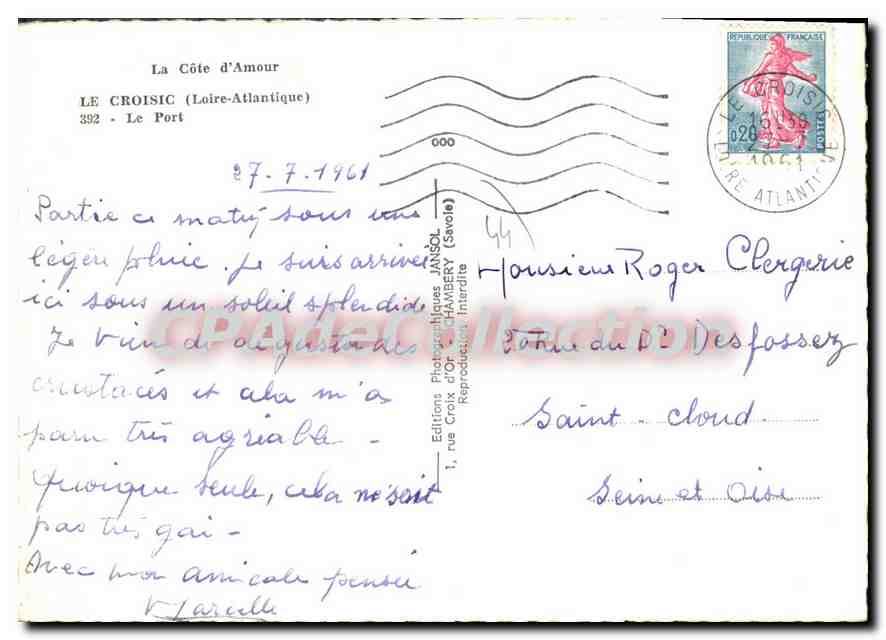 La Côte d'Amour
LE CROISIC (Loire-Atlantique)
392 - Le Port
27.7.1961
Partie ce matin sous une
légère pluie. Je suis arrivée
ici sous un soleil splendide
Je viens de déguster des
crustacés et cela m'a
paru très agréable -
Quoique seule, cela ne soit
pas très gai -
Avec mon amicale pensée
Marcelle
Editions Photographiques JANSOL
1, rue Croix d'Or - CHAMBÉRY (Savoie)
Reproduction Interdite
ooo
44
REPUBLIQUE FRANÇAISE
0,20
POSTES
LE CROISIC
16H30
1961
LOIRE ATLANTIQUE
Monsieur Roger Clergerie
Rue du Dr Desfossez
Saint-Cloud
Seine et Oise
CPAdeCollection